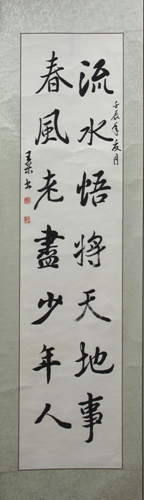 流水悟將天地事
春風老盡少年人
壬辰年夏月
王